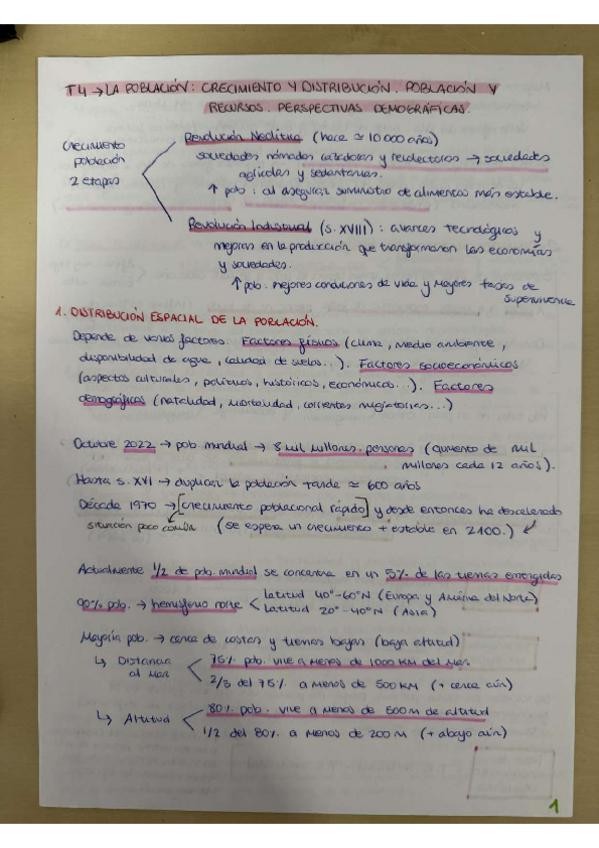 T4 → LA POBLACIÓN: CRECIMIENTO Y DISTRIBUCIÓN. POBLACIÓN Y
RECURSOS. PERSPECTIVAS DEMOGRÁFICAS.
Crecimiento población 2 etapas
Revolución Neolítica (hace ≃ 10 000 años)
sociedades nómadas cazadoras y recolectoras → sociedades
agrícolas y sedentarias.
↑ pob: al asegurar suministro de alimentos más estable.
Revolución Industrial (s. XVIII): avances tecnológicos y
mejoras en la producción que transformaron las economías
y sociedades.
↑ pob. mejores condiciones de vida y mayores tasas de
supervivencia
1. DISTRIBUCIÓN ESPACIAL DE LA POBLACIÓN.
Depende de varios factores. Factores físicos (clima, medio ambiente,
disponibilidad de agua, calidad de suelos...). Factores socioeconómicos
(aspectos culturales, políticos, históricos, económicos...). Factores
demográficos (natalidad, mortalidad, corrientes migratorias...)
Octubre 2022 → pob. mundial → 8 mil millones personas (aumento de mil
millones cada 12 años).
Hasta s. XVI → duplicar la población tarda ≃ 600 años
Década 1970 → [crecimiento poblacional rápido] y desde entonces ha descelerado
situación poco común (se espera un crecimiento + estable en 2100.)
Actualmente 1/2 de pob. mundial se concentra en un 5% de las tierras emergidas
90% pob. → hemisferio norte < latitud 40°-60°N (Europa y América del Norte)
latitud 20°-40°N (Asia)
Mayoría pob. → cerca de costas y tierras bajas (baja altitud)
↳ Distancia al mar < 75% pob. vive a menos de 1000 KM del mar
2/3 del 75% a menos de 500 KM (+ cerca aún)
↳ Altitud < 80% pob. vive a menos de 500 m de altitud
1/2 del 80% a menos de 200 m (+ abajo aún)
1